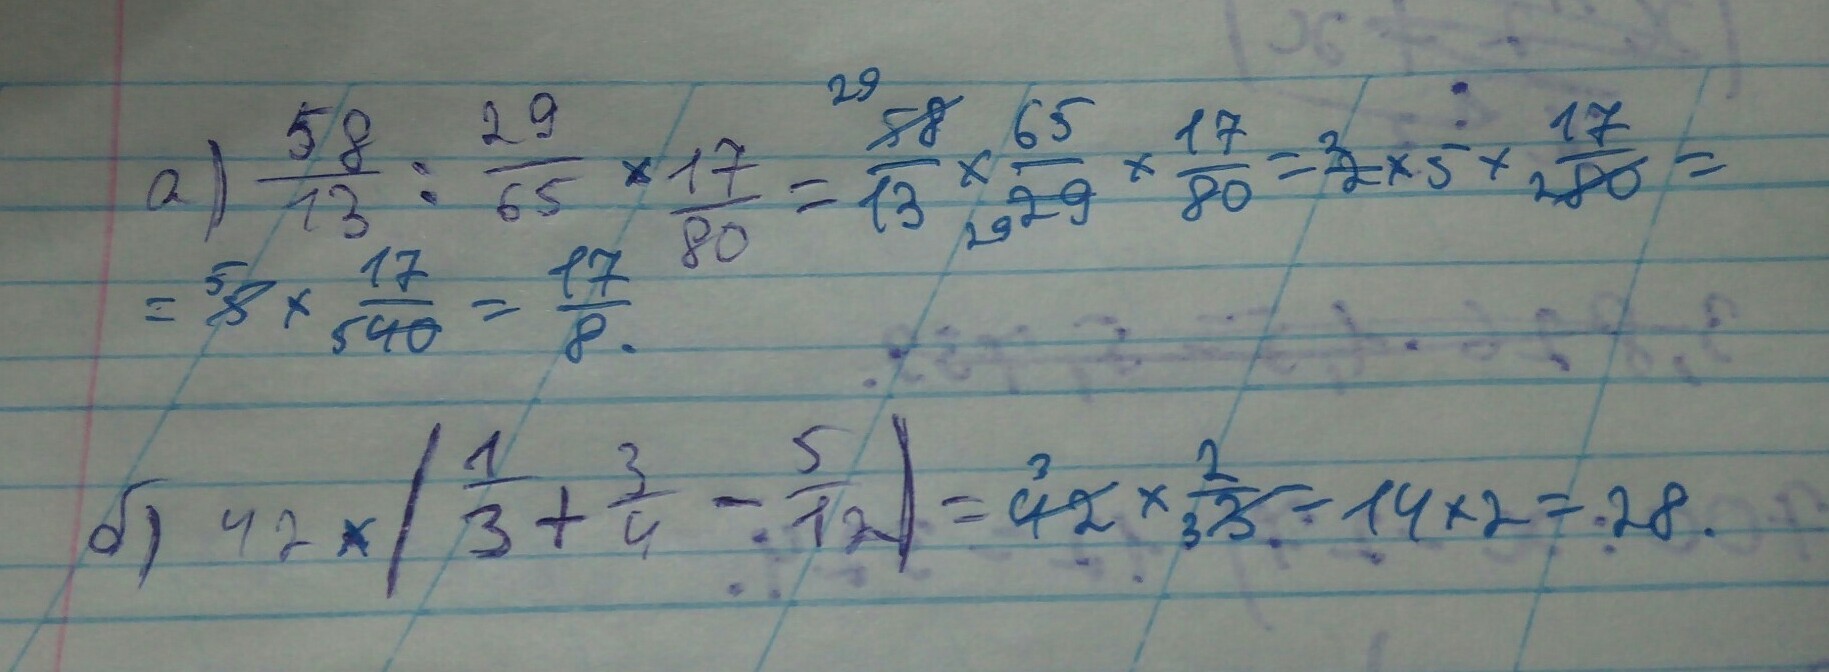 а) 58/13 : 29/65 × 17/80 = 29 58/13 × 65/29 29 × 17/80 = 2 2 × 5 × 17/2 80 =
= 5 5 × 17/5 40 = 17/8.
б) 42 × (1/3 + 3/4 - 5/12) = 3 42 × 2/3 3 = 14 × 2 = 28.